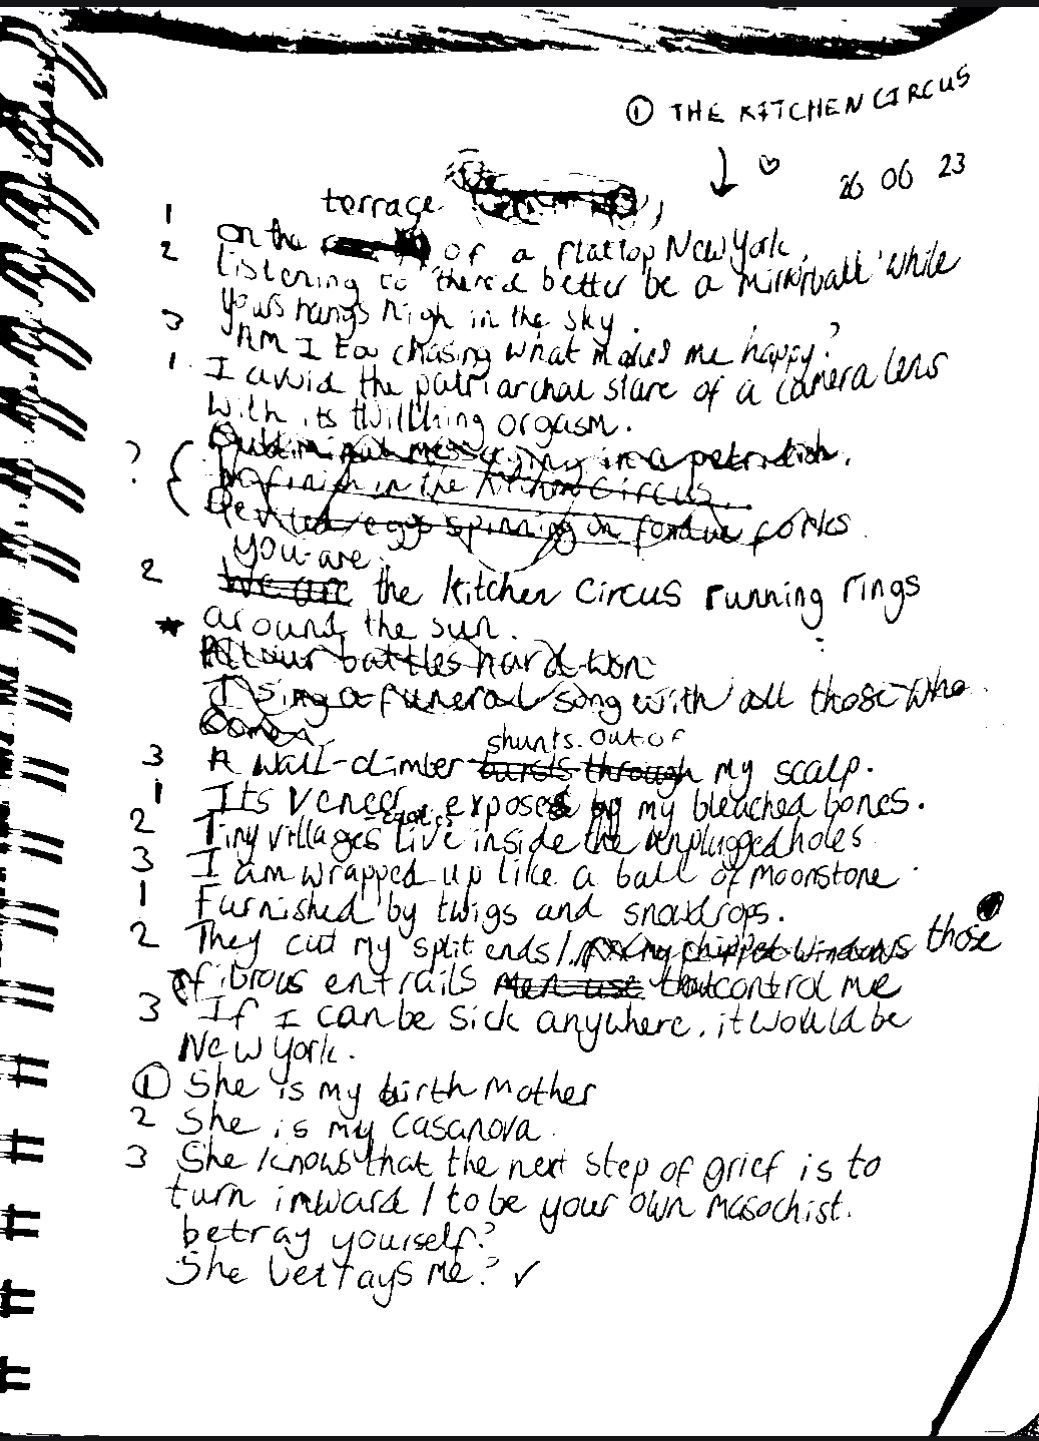 ① THE KITCHEN CIRCUS
26 06 23
terrace
1 on the of a flattop New York,
2 listening to 'there'd better be a mirrorball' while
yours hangs high in the sky.
3 Am I too chasing what makes me happy?
1. I avoid the patriarchal stare of a camera lens
with its thrilling orgasm.
Subliminal messaging in a petri dish.
? No finish in the Kitchen Circus.
Devilled eggs spinning on fondue forks
you are
2 We are the Kitchen Circus running rings
around the sun.
All our battles hard-won
I sing a funeral song with all those who
shunts out of
3 A wall-climber bursts through my scalp.
1 Its veneer exposed by my bleached bones.
2 Tiny villages live inside the unplugged holes
3 I am wrapped up like a ball of moonstone.
1 Furnished by twigs and snowdrops.
2 They cut my split ends / my chipped windows those
fibrous entrails men use that control me
3 If I can be sick anywhere, it would be
New York.
① She is my birth mother
2 She is my Casanova.
3 She knows that the next step of grief is to
turn inward / to be your own masochist.
betray yourself?
She betrays me? ✓